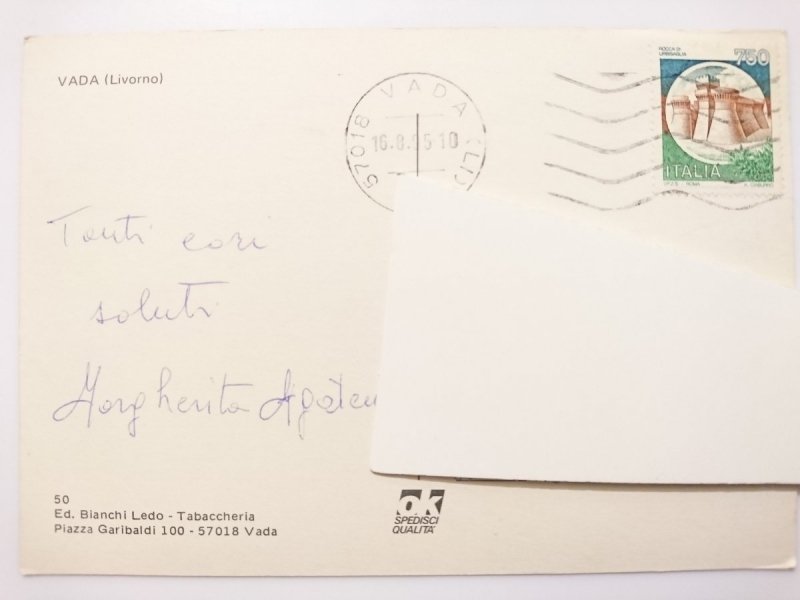 VADA (Livorno)
57018 VADA (LI)
16.8.95.10
ROCCA DI
URBISAGLIA
750
ITALIA
I.P.Z.S. ROMA
Tanti cari
saluti
Margherita
50
Ed. Bianchi Ledo - Tabaccheria
Piazza Garibaldi 100 - 57018 Vada
ok
SPEDISCI
QUALITA'